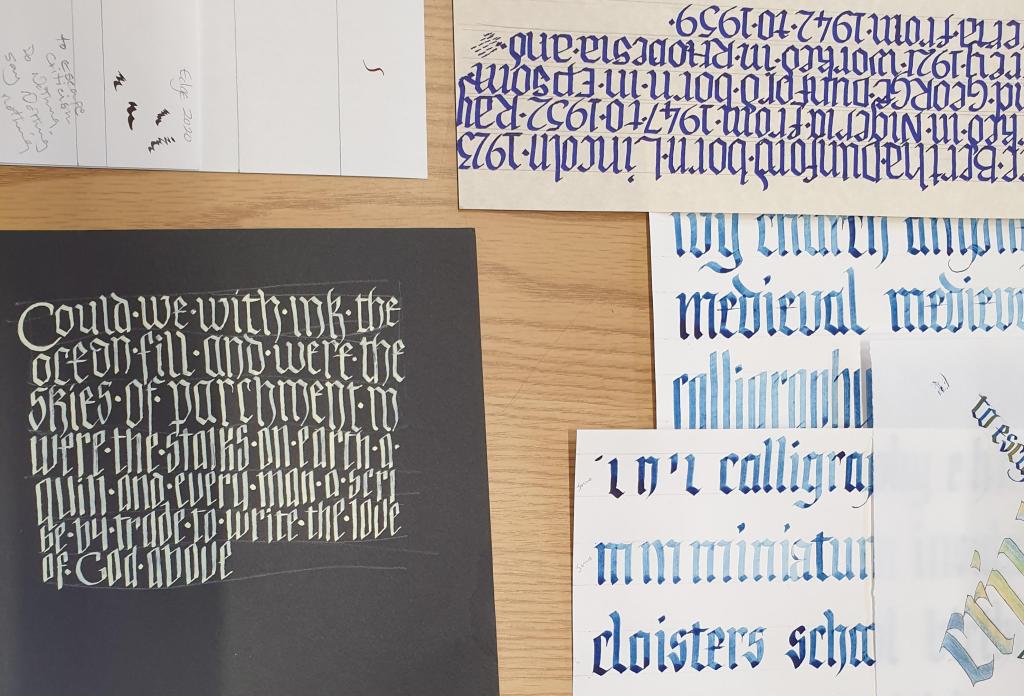 to escape
criticism
Do Nothing
say nothing
2020
Bertha·Dunford·born·Lincoln·1923
in·Nigeria·from·1947·to·1952·Ray
George·Dunford·born·in·Epsom
1921·worked·in·Rhodesia·and
from·1942·to·1959.
Could·we·with·ink·the
ocean·fill·and·were·the
skies·of·parchment·m
were·the·stalks·on·earth·a·
quill·and·every·man·a·scri
be·by·trade·to·write·the·love
of·God·above
church
medieval medieval
calligraphy
calligra
m m miniatur
cloisters
to esc